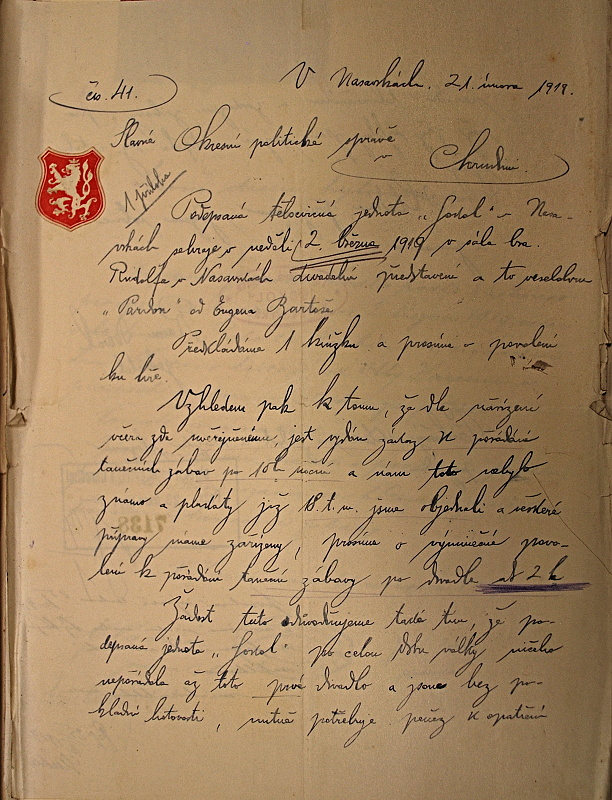 čís. 41.
V Nasavrkách, 21. února 1919.
Slavné Okresní politické správě
v Chrudimi.
1 příloha
Podepsaná tělocvičná jednota „Sokol" v Nasa-
vrkách sehraje v neděli 2. března 1919 v sále bra.
Rudolfa v Nasavrkách divadelní představení a to veselohru
„Pardon" od Eugena Bartoše
Předkládáme 1 knížku a prosíme o povolení
ku hře.
Vzhledem pak k tomu, že dle nařízení
včera zde uveřejněného, jest vydán zákaz k pořádání
tanečních zábav po 10 h. noční a nám toto nebylo
známo a plakáty již 18. t. m. jsme objednali a veškeré
přípravy máme zařízeny, prosíme o výjimečné povo-
lení k pořádání taneční zábavy po divadle až 2 h
Žádost tuto odůvodňujeme tím, že po-
depsaná jednota „Sokol" po celou dobu války ničeho
nepořádala až toto prvé divadlo a jsouc bez po-
kladní hotovosti, nutně potřebuje peněz k opatření
7138